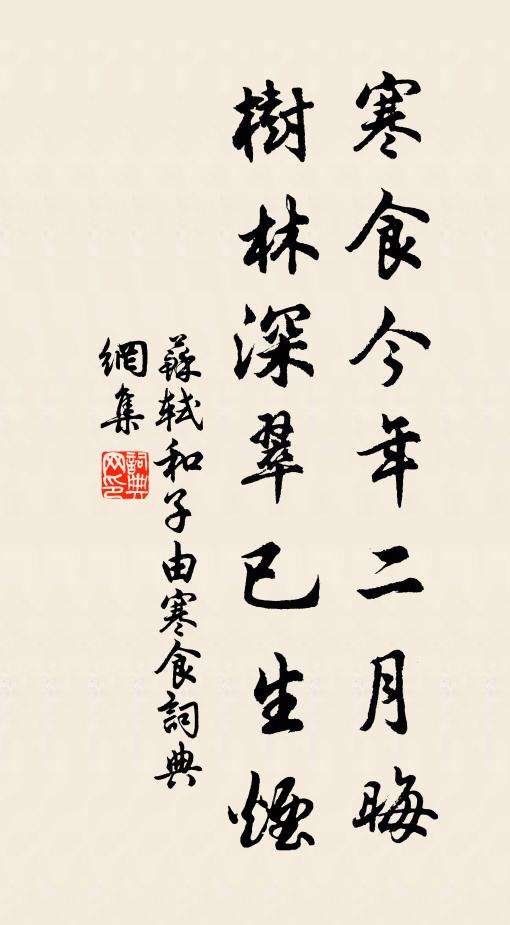 寒食今年二月晦
樹林深翠已生煙
蘇軾和子由寒食詞典
網集
詞典
网印